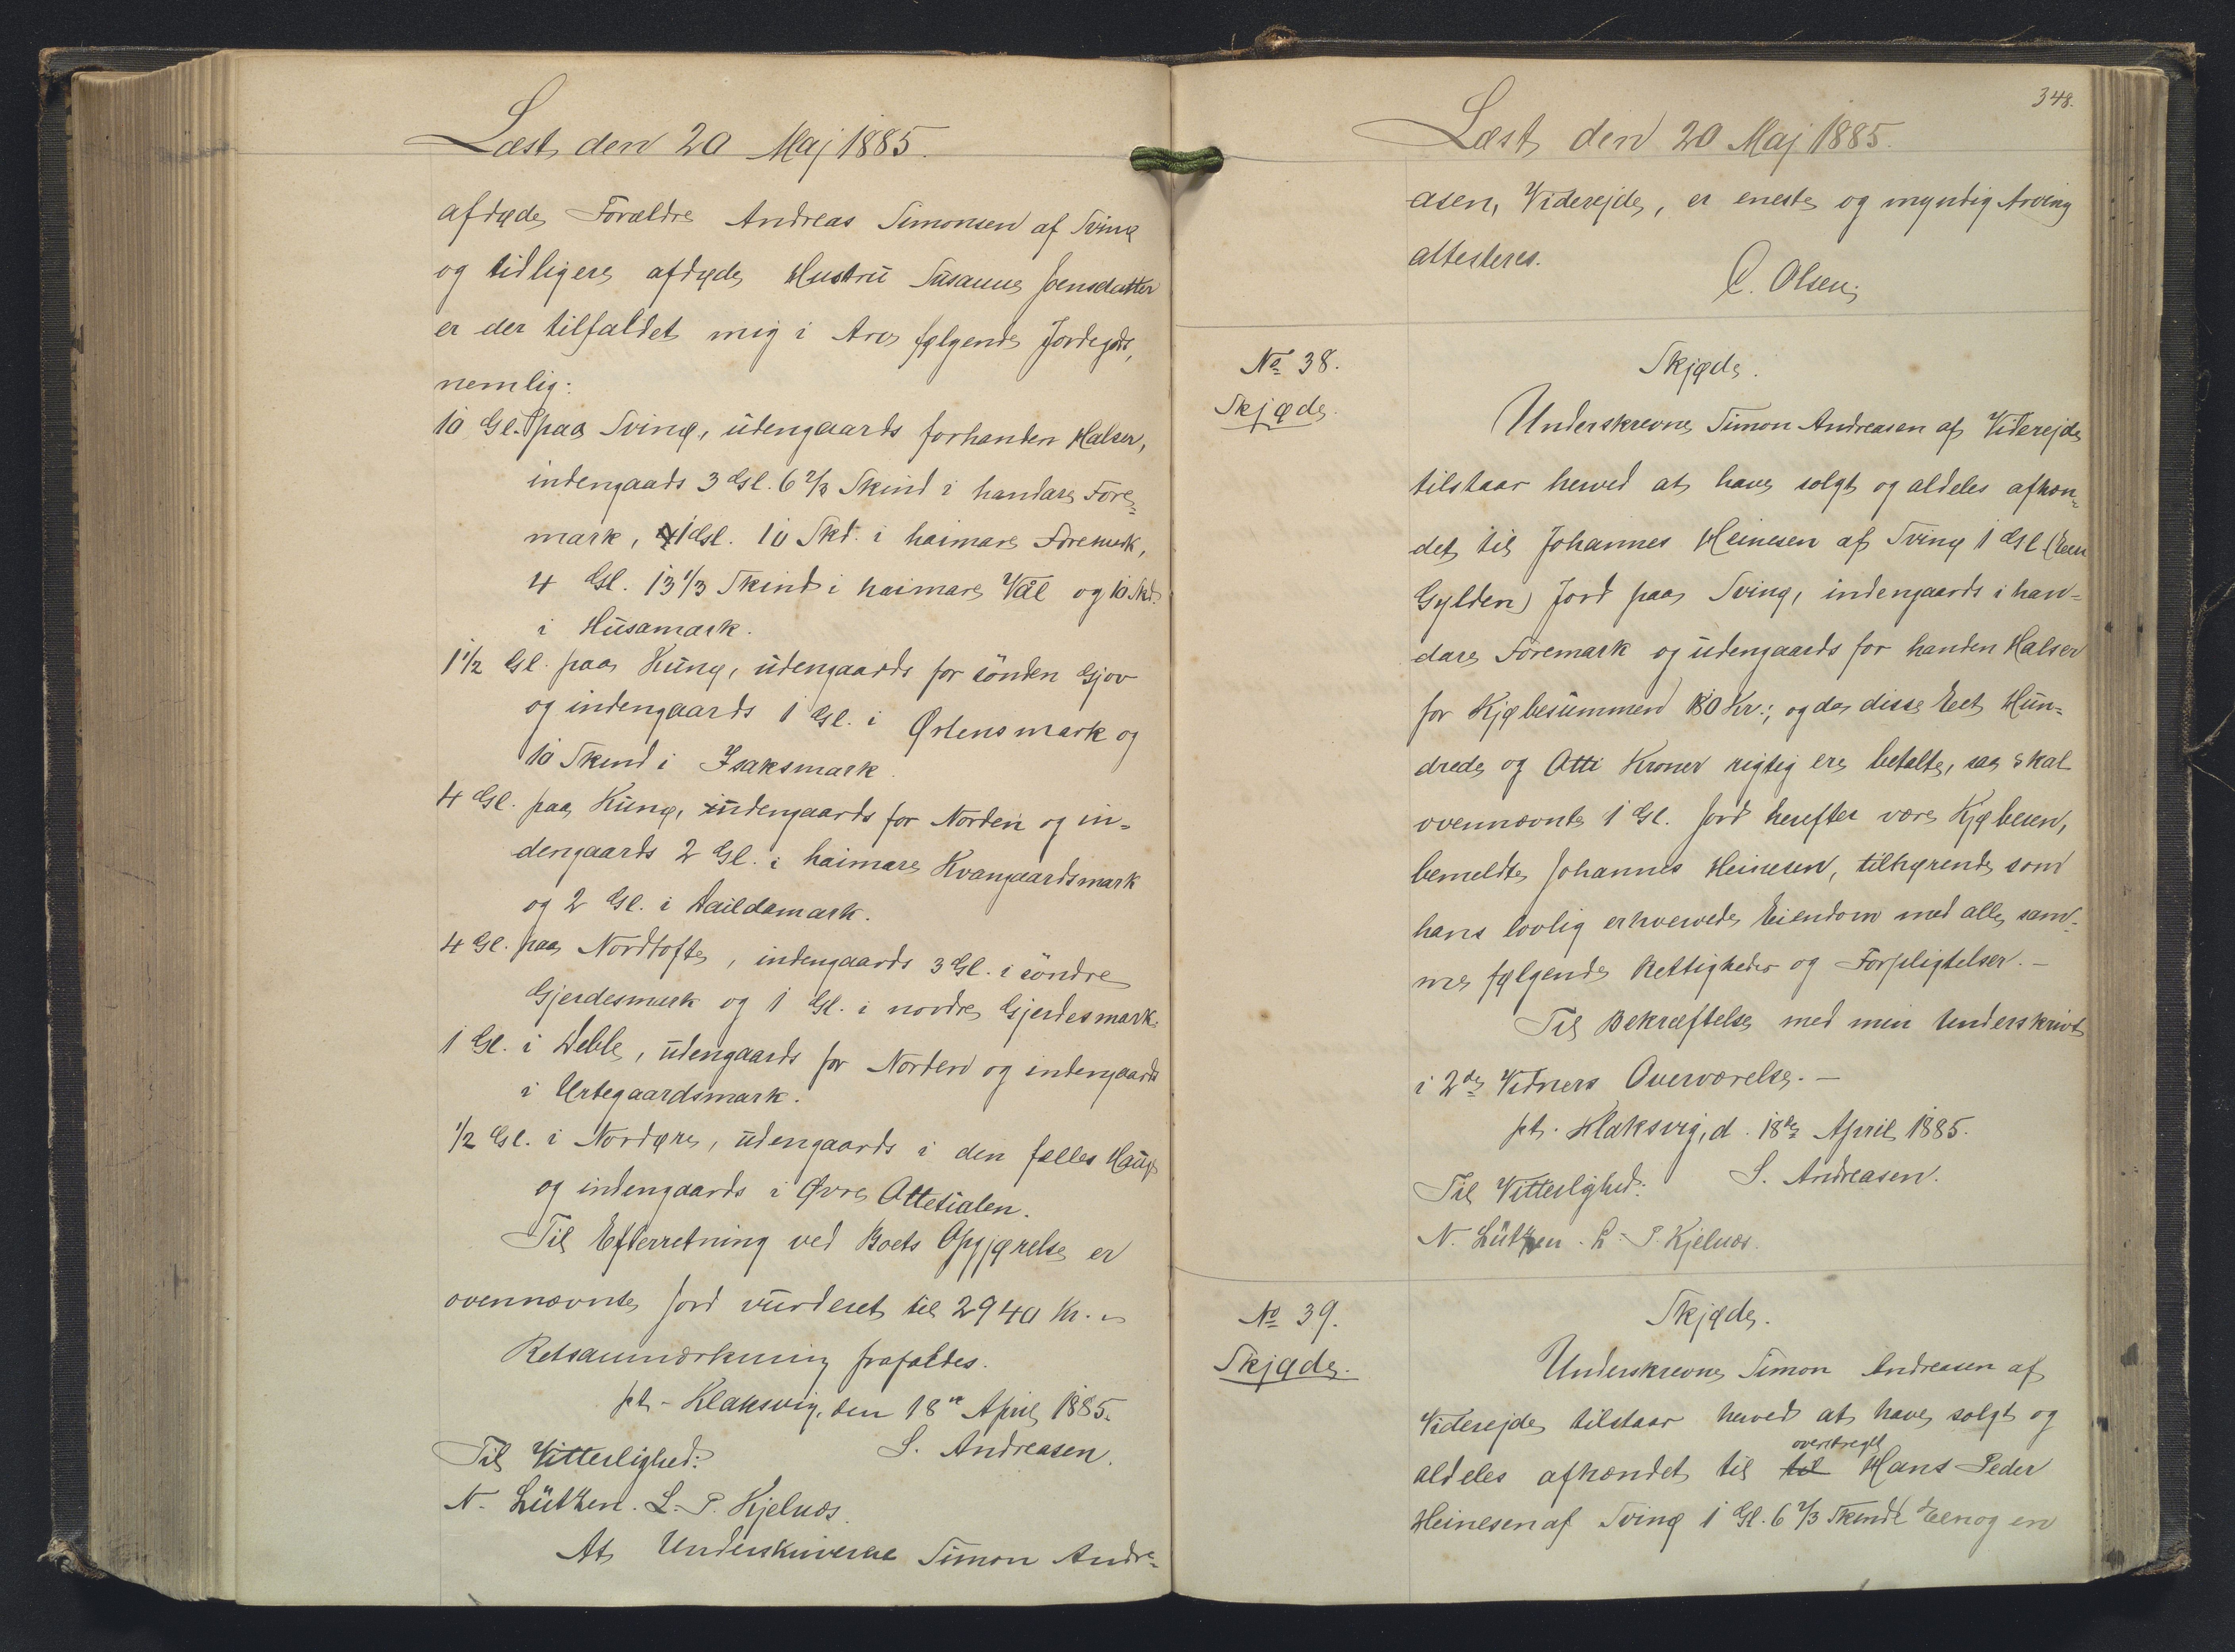 Læst den 20 Maj 1885.
afdøde Forældre Andreas Simonsen af Svinø
og tidligere afdøde Hustru Susanne Joensdatter
er der tilfaldet mig i Arv følgende Jordegods,
nemlig:
10 Gl. paa Svinø, udengaards forhanden Halser,
indengaads 3 Gl. 6 2/3 Skind i handare Fore-
mark, 1 Gl. 10 Skd. i haimare Foremark,
4 Gl. 13 1/3 Skind i haimare Vál og 10 Skd.
i Húsamark.
1 1/2 Gl. paa Kunø, udengaards for sönden Gjov
og indengaards 1 Gl. i Ørtensmark og
10 Skind i Isaksmark.
4 Gl. paa Kunø, udengaards for Norden og in-
dengaards 2 Gl. i haimare Kvangaardsmark
og 2 Gl. i Daildamark.
4 Gl. paa Nordtofte, indengaards 3 Gl. i söndre
Gjerdesmark og 1 Gl. i nordre Gjerdesmark.
1 Gl. i Deble, udengaards for Norden og indengaards
i Urtegaardsmark.
1/2 Gl. i Nordøre, udengaards i den fælles Hauge
og indengaards i Øvre Attetialen.
Til Efterretning ved Boets Opgjørelse er
ovennævnte Jord vurderet til 2940 Kr.
Retsanmærkning frafaldes.
pt. Klaksvig, den 18de April 1885.
Til Vitterlighed: S. Andreasen.
N. Lützen. L. P. Kjelnæs.
At Underskriverne Simon Andre-
348.
Læst den 20 Maj 1885.
asen, Viderejde, er eneste og myndig Arving
attesteres.
C. Olsen,
No 38.
Skjøde.
Skjøde.
Underskrevne Simon Andreasen af Viderejde
tilstaar herved at have solgt og aldeles afhæn-
det til Johannes Heinesen af Svinø 1 Gl (Een
Gylden) Jord paa Svinø, indengaards i han-
dare Foremark og udengaards for handen Halser
for Kjøbesummen 180 Kr.; og da disse Eet Hun-
drede og Otti Kroner rigtig ere betalte, saa skal
ovennævnte 1 Gl. Jord herefter være Kjøberen,
bemeldte Johannes Heinesen, tilhørende som
hans lovlig erhvervede Eiendom med alle sam-
me følgende Rettigheder og Forpligtelser. -
Til Bekræftelse med min Underskrivt
i 2de Vidners Overværelse. -
pt. Klaksvig, d. 18de April 1885.
Til Vitterlighed: S. Andreasen.
N. Lützen. L. P. Kjelnæs.
No 39.
Skjøde.
Skjøde.
Underskrevne Simon Andreasen af
Viderejde tilstaar herved at have solgt og
overstreget
aldeles afhændet til til Hans Peder
Heinesen af Svinø 1 Gl. 6 2/3 Skind (Een og en